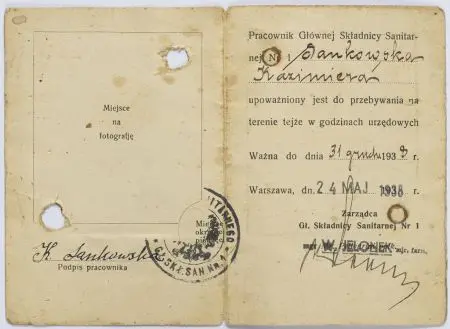 Miejsce
na
fotografję
Miejsce
K. Sankowska
Podpis pracownika
SKŁ. SAN. NR. 1
Pracownik Głównej Składnicy Sanitar-
nej Nr 1 Sankowska
Kazimiera
upoważniony jest do przebywania na
terenie tejże w godzinach urzędowych
Ważna do dnia 31 grudn. 1938 r.
Warszawa, dn. 24 MAJ 1938
Zarządca
Gł. Składnicy Sanitarnej Nr 1
W. JELONEK